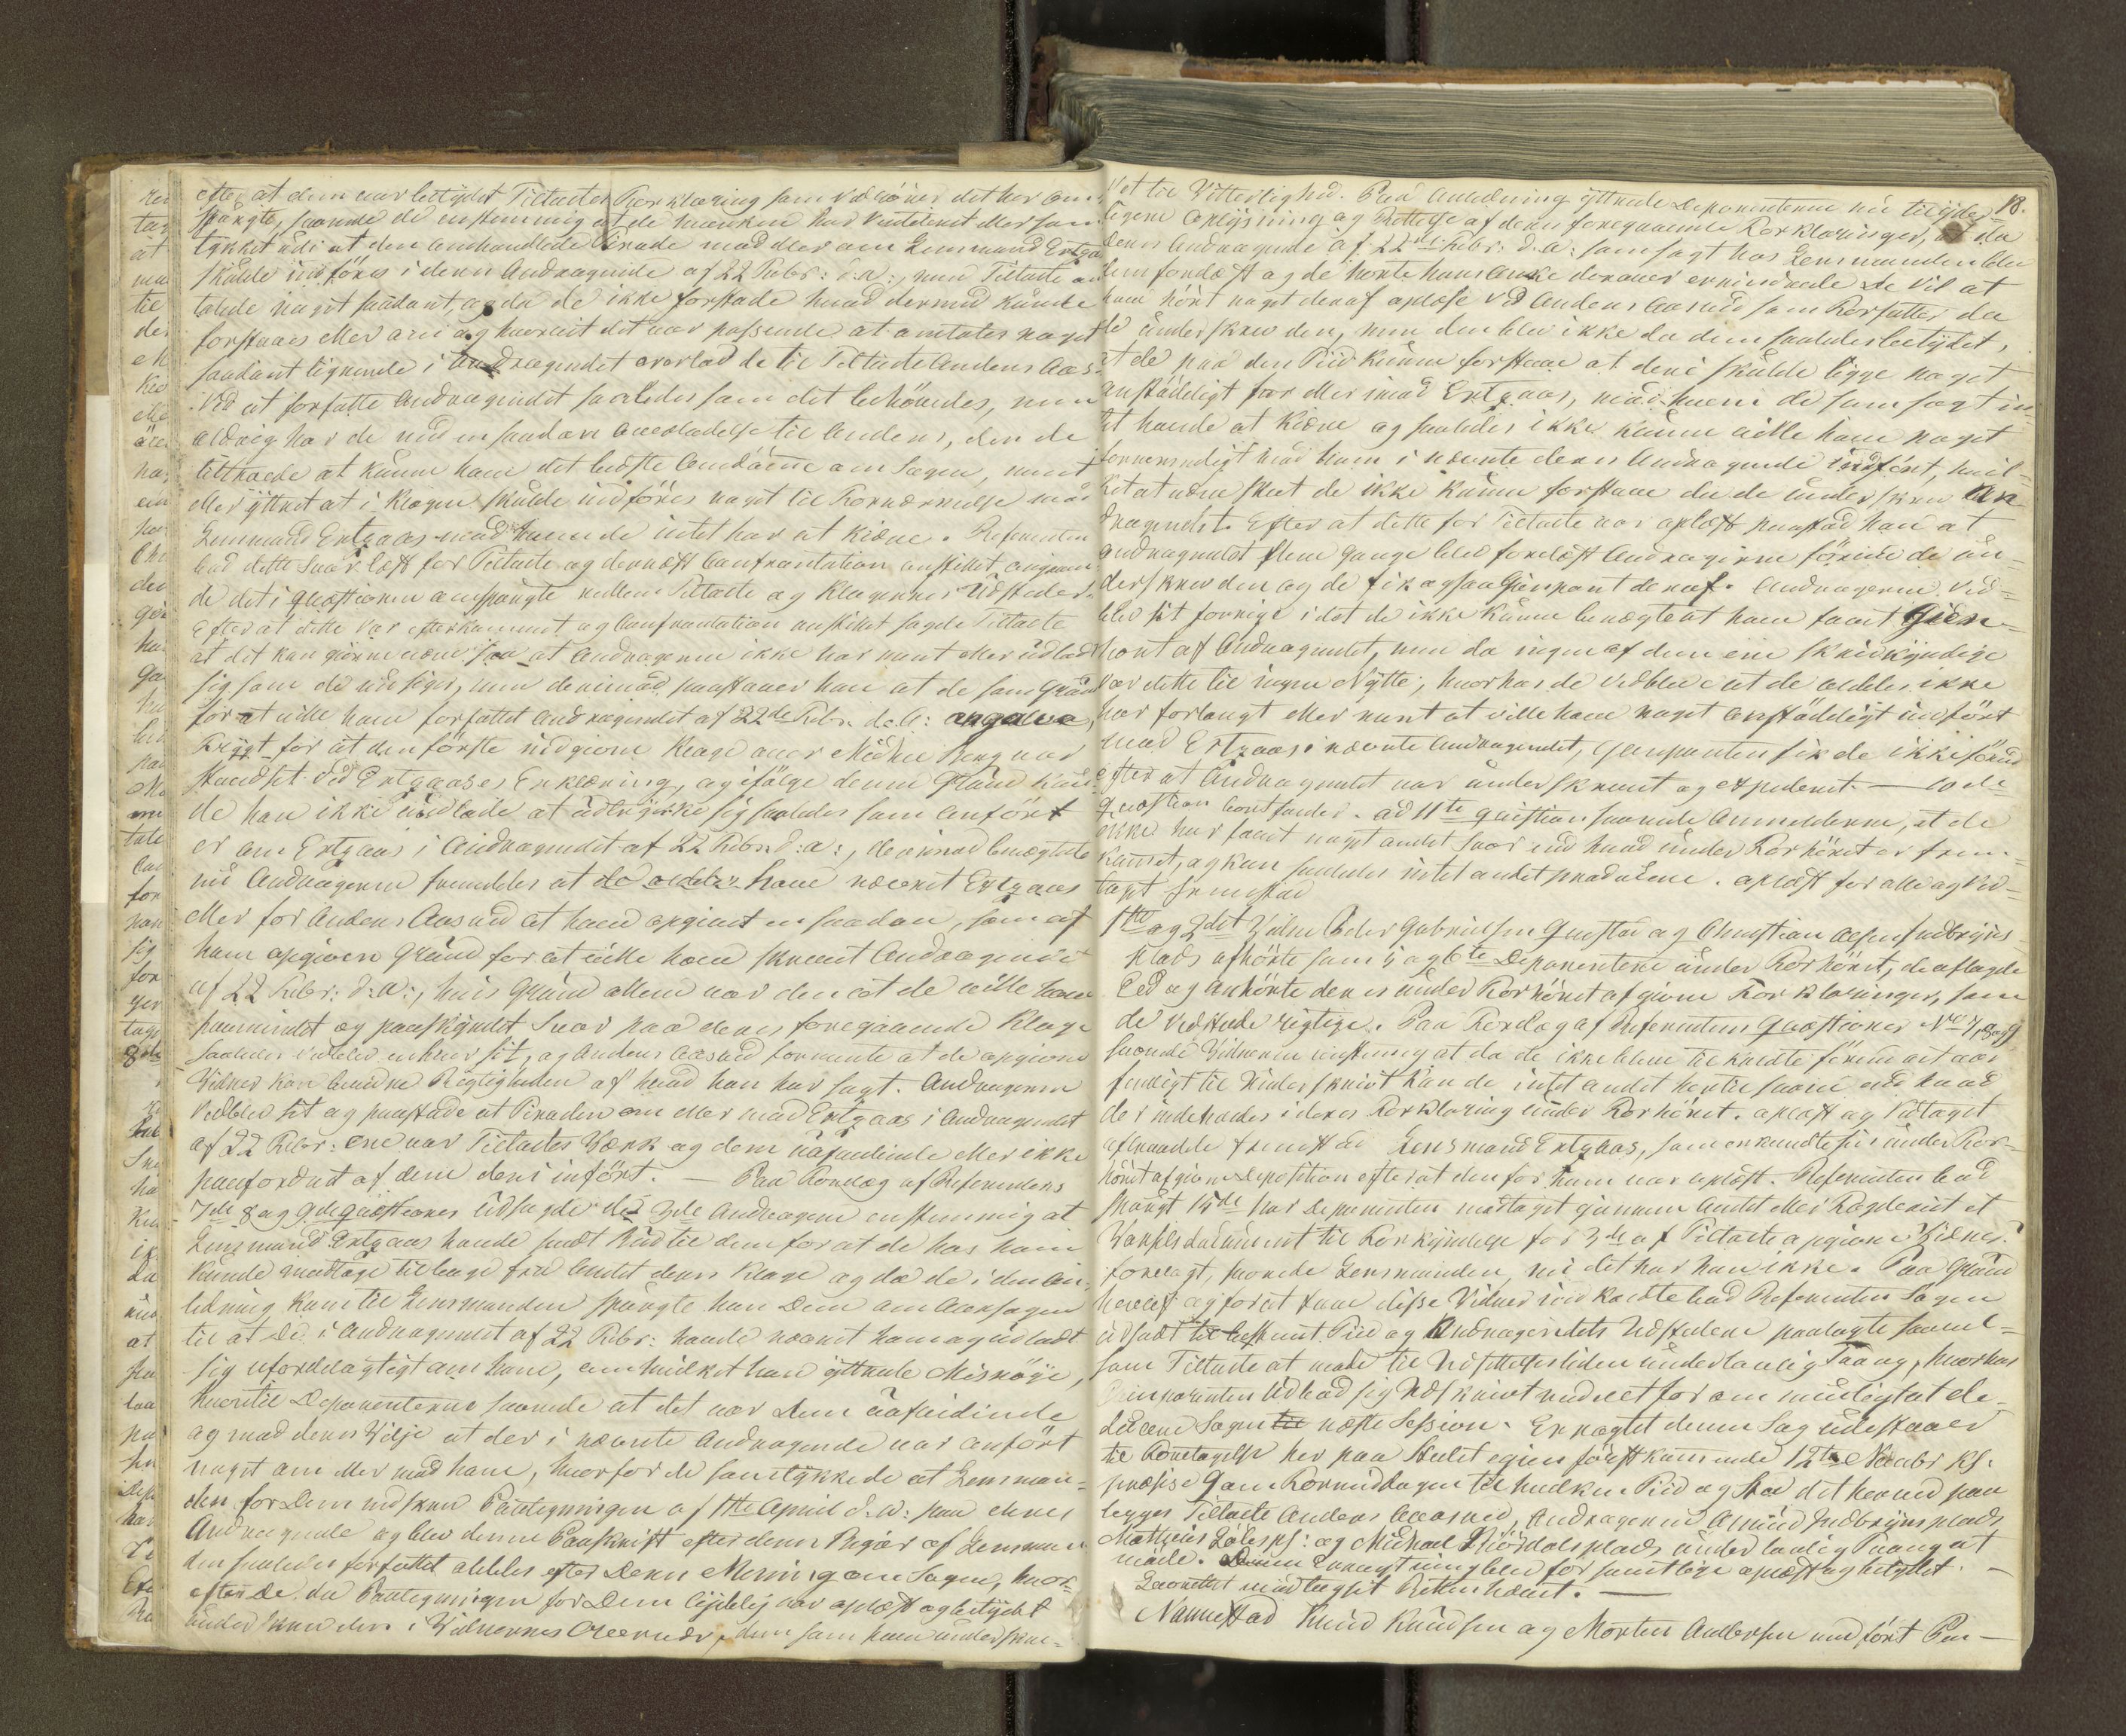 efter at dem var betydet Tiltaltes Forklaring som vedkommer det her om-
spurgte, svarede de enstemmig at de hverken har verderet eller sam-
tykket udi at den omhandlede Tirade mod eller om Lensmand Ertzaas
skulde indföres i deres Andragende af 22 Febr: d. A:, men Tiltalte om
talede noget saadant, og da de ikke forstode hvad dermed kunde
forstaaes eller om og hvorvit det var passende at omtales noget
saadant lignende i Andragendet overlod de til Tiltalte Anders Aas-
ved at forfatte Andragendet saaledes som det behövedes, men
aldrig har de med en saadan Overladelse til Anders, den de
tiltroede at kunne have det bedste Omdömme om Sagen, meent
eller yttret at i Klagen skulde indföres noget til Fornærmelse mod
Lensmand Ertzaas mod hvem de intet har at kiære. Referenten
bad dette Svar læst for Tiltalte og dernæst Confrontation anstillet angaaen-
de det i Qvæstionen omspurgte mellem Tiltalte og Klagernes Udstedere.
Efter at dette var efterkommet og Confrontation anstillet sagde Tiltalte
at det kan gierne være saa at Andragerne ikke har meent eller udladt
sig som de nu siger, men derimod paastaaer han at de som Grund
for at ville have forfattet Andragendet af 22de Febr. d. A: angave,
Frygt for at den förste indgivne Klage over Michel Berg var
standset ved Ertzaases Erklæring, og ifölge denne Grund kun-
de han ikke undlade at udtrykke sig saaledes som anfört
er om Ertzaas i Andragendet af 22 Febr. d: a:, derimod benægtede
nu Andragerne fremdeles at de aldeles have nævnet Ertzaas
eller for Anders Aasved at have opgivet en saadan, som af
ham opgiven Grund for at ville have skrevet Andragendet
af 22 Febr: d: a:, hvis Grund allene var den at de ville have
paamindet og paaskyndet Svar paa deres foregaaende Klage
saaledes vedblev enhver sit, og Anders Aasved formente at de opgivne
Vidner kan bevidne Rigtigheden af hvad han har sagt. Andragerne
vedblev sit og paastode at Tiraden om eller mod Ertzaas i Andragendet
af 22 Febr: ene var Tiltaltes Værk og dem uafvidende eller ikke
paafordret af dem deri infört. — Paa Forelæg af Referendens
7de 8 og 9de Qvæstioner udsagde de 3de Andragere enstemmig at
Lensmand Ertzaas havde sendt Bud til dem for at de hos ham
kunde modtage tilbage fra Amtet deres Klage og da de i den An-
ledning kom til Lensmanden spurgte han Dem om Aarsagen
til at De i Andragendet af 22 Febr: havde nævnt ham og udladt
sig ufordelagtigt om ham, om hvilket han yttrede Misnöje,
hvortil Deponenterne svarede at det var Dem uafvidende
og mod deres Vilje at der i nævnte Andragende var anfört
noget om eller mod ham, hvorfor de samtykkede at Lensman-
den for Dem nedskrev Paategningen af 1ste April d. A: paa deres
Andragende og blev denne Paaskrift efter deres Begiær af Lensman
den saaledes forfattet aldeles efter Deres Mening om Sagen, hvor-
efter De da Paategningen for Dem tydelig var oplæst og betydet
underskrev den i Vidnernes Overvær, dem som have underskre-
18.
vet til Vitterlighed. Paa Anledning yttrede Deponenterne nu til yder-
ligere Oplysning og Rettelse af deres foregaaende Forklaringer, at da
deres Andragende af 22de Febr: d. A: som sagt hos Lensmanden blev
dem forelæst og de hörte hans Anke derover erindrede de vel at
have hört noget deraf oplæse ved Anders Aasved som Forfatter da
de underskrev den, men den blev ikke da dem saaledes betydet,
at de paa den Tiid kunne forstaae at deri skulde ligge noget
anstödeligt for eller imod Ertzaas, mod hvem de som sagt in-
tet havde at kiære og saaledes ikke kunne ville have noget
fornærmeligt mod ham i nævnte deres Andragende indfört, hvil-
ket at være skeet de ikke kunne forstaae da de underskrev An-
dragendet. Efter at dette for Tiltalte var oplæst paastod han at
Andragendet flere Gange blev forelæst Andragerne förend de un-
derskrev den og de fik ogsaa Gienpart deraf. Andragerne ved-
blev sit forrige i det de ikke kunne benægte at have faaet Gien-
part af Andragendet, men da ingen af dem ere Skrivkyndige
var dette til ingen Nytte, hvorhos de vedblev at de aldeles ikke
har forlangt eller meent at ville have noget anstödeligt indfört
mod Ertzaas i nævnte Andragendet, Genparten fik de ikke förend
efter at Andragendet var underskrevet og expederet. — 10de
Qvæstion bortfalder. ad 11te Qvæstion svarede Anmelderne, at de
ikke har faaet noget andet Svar end hvad under Forhöret er frem-
kommet, og kan saaledes intet andet producere. Oplæst for alle og ved-
taget Fremstod
1ste og 2det Vidne Peder Gabrielsen Qvæstad og Christian Olsen Indbryns
plads afhörte som 5 og 6te Deponentere under Forhöret, de aflagde
Eed og anhörte deres under Forhöret afgivne Forklaringer, som
de vedstode rigtige. Paa Forelæg af Referentens Qvæstioner No 7, 8 og 9
svarede Vidnerne enstemmig at da de ikke blev tilkaldte förend alt var
færdigt til Underskrivt kan de intet andet hertil svare end hvad
der indeholdes i deres Forklaring under Forhöret. Oplæst og vedtaget
aftraadde Fremstod Lensmand Ertzaas, som erkiendte sin under For-
höret afgivne Deposition efter at den for ham var oplæst. Referenten bad
spurgt 15de Har Deponenten modtaget giennem Amtet eller Fogderiet et
Varselsdocument til Forkyndelse for 3de af Tiltalte opgivne Vidner?
forelagt, svarede Lensmanden, nei det har han ikke. Paa Grund
heraf og for at faae disse Vidner indkaldte bad Referenten Sagen
udsadt til bestemt Tiid og Andragendets Udstedere paalagte saavel-
som Tiltalte at möde til Udsættelsestiden under lovlig Tvang, hvorhos
Qvinqverenten udbad sig Udskrivt meddeelt for om mueligt at de-
ducere Sagen til næste Session. Eragtet denne Sag udestaaer
til Foretagelse her paa Stedet igien förstkommende 12te Novbr kl:
præcise 9 om Formiddagen til hvilken Tiid og Sted det herved paa
legges Tiltalte Anders Aasved, Andragerne Amund Indbrynsplads
Mathias Lölespl: og Michael Stördalsplads under lovlig Tvang at
möde. Denne Eragtning blev for samtlige oplæst og betydet. —
Qvæsitet modtaget Retten hævet. —
Namestad Knud Knudsen og Morten Andersen medfört Pen-